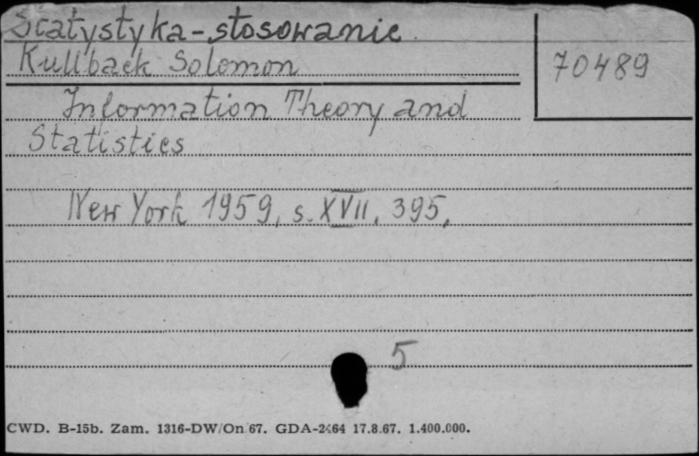 Statystyka-stosowanie
Kullback Solomon
70489
Information Theory and
Statistics
New York 1959, s. XVII, 395,
5
CWD. B-15b. Zam. 1316-DW/On 67. GDA-2464 17.8.67. 1.400.000.